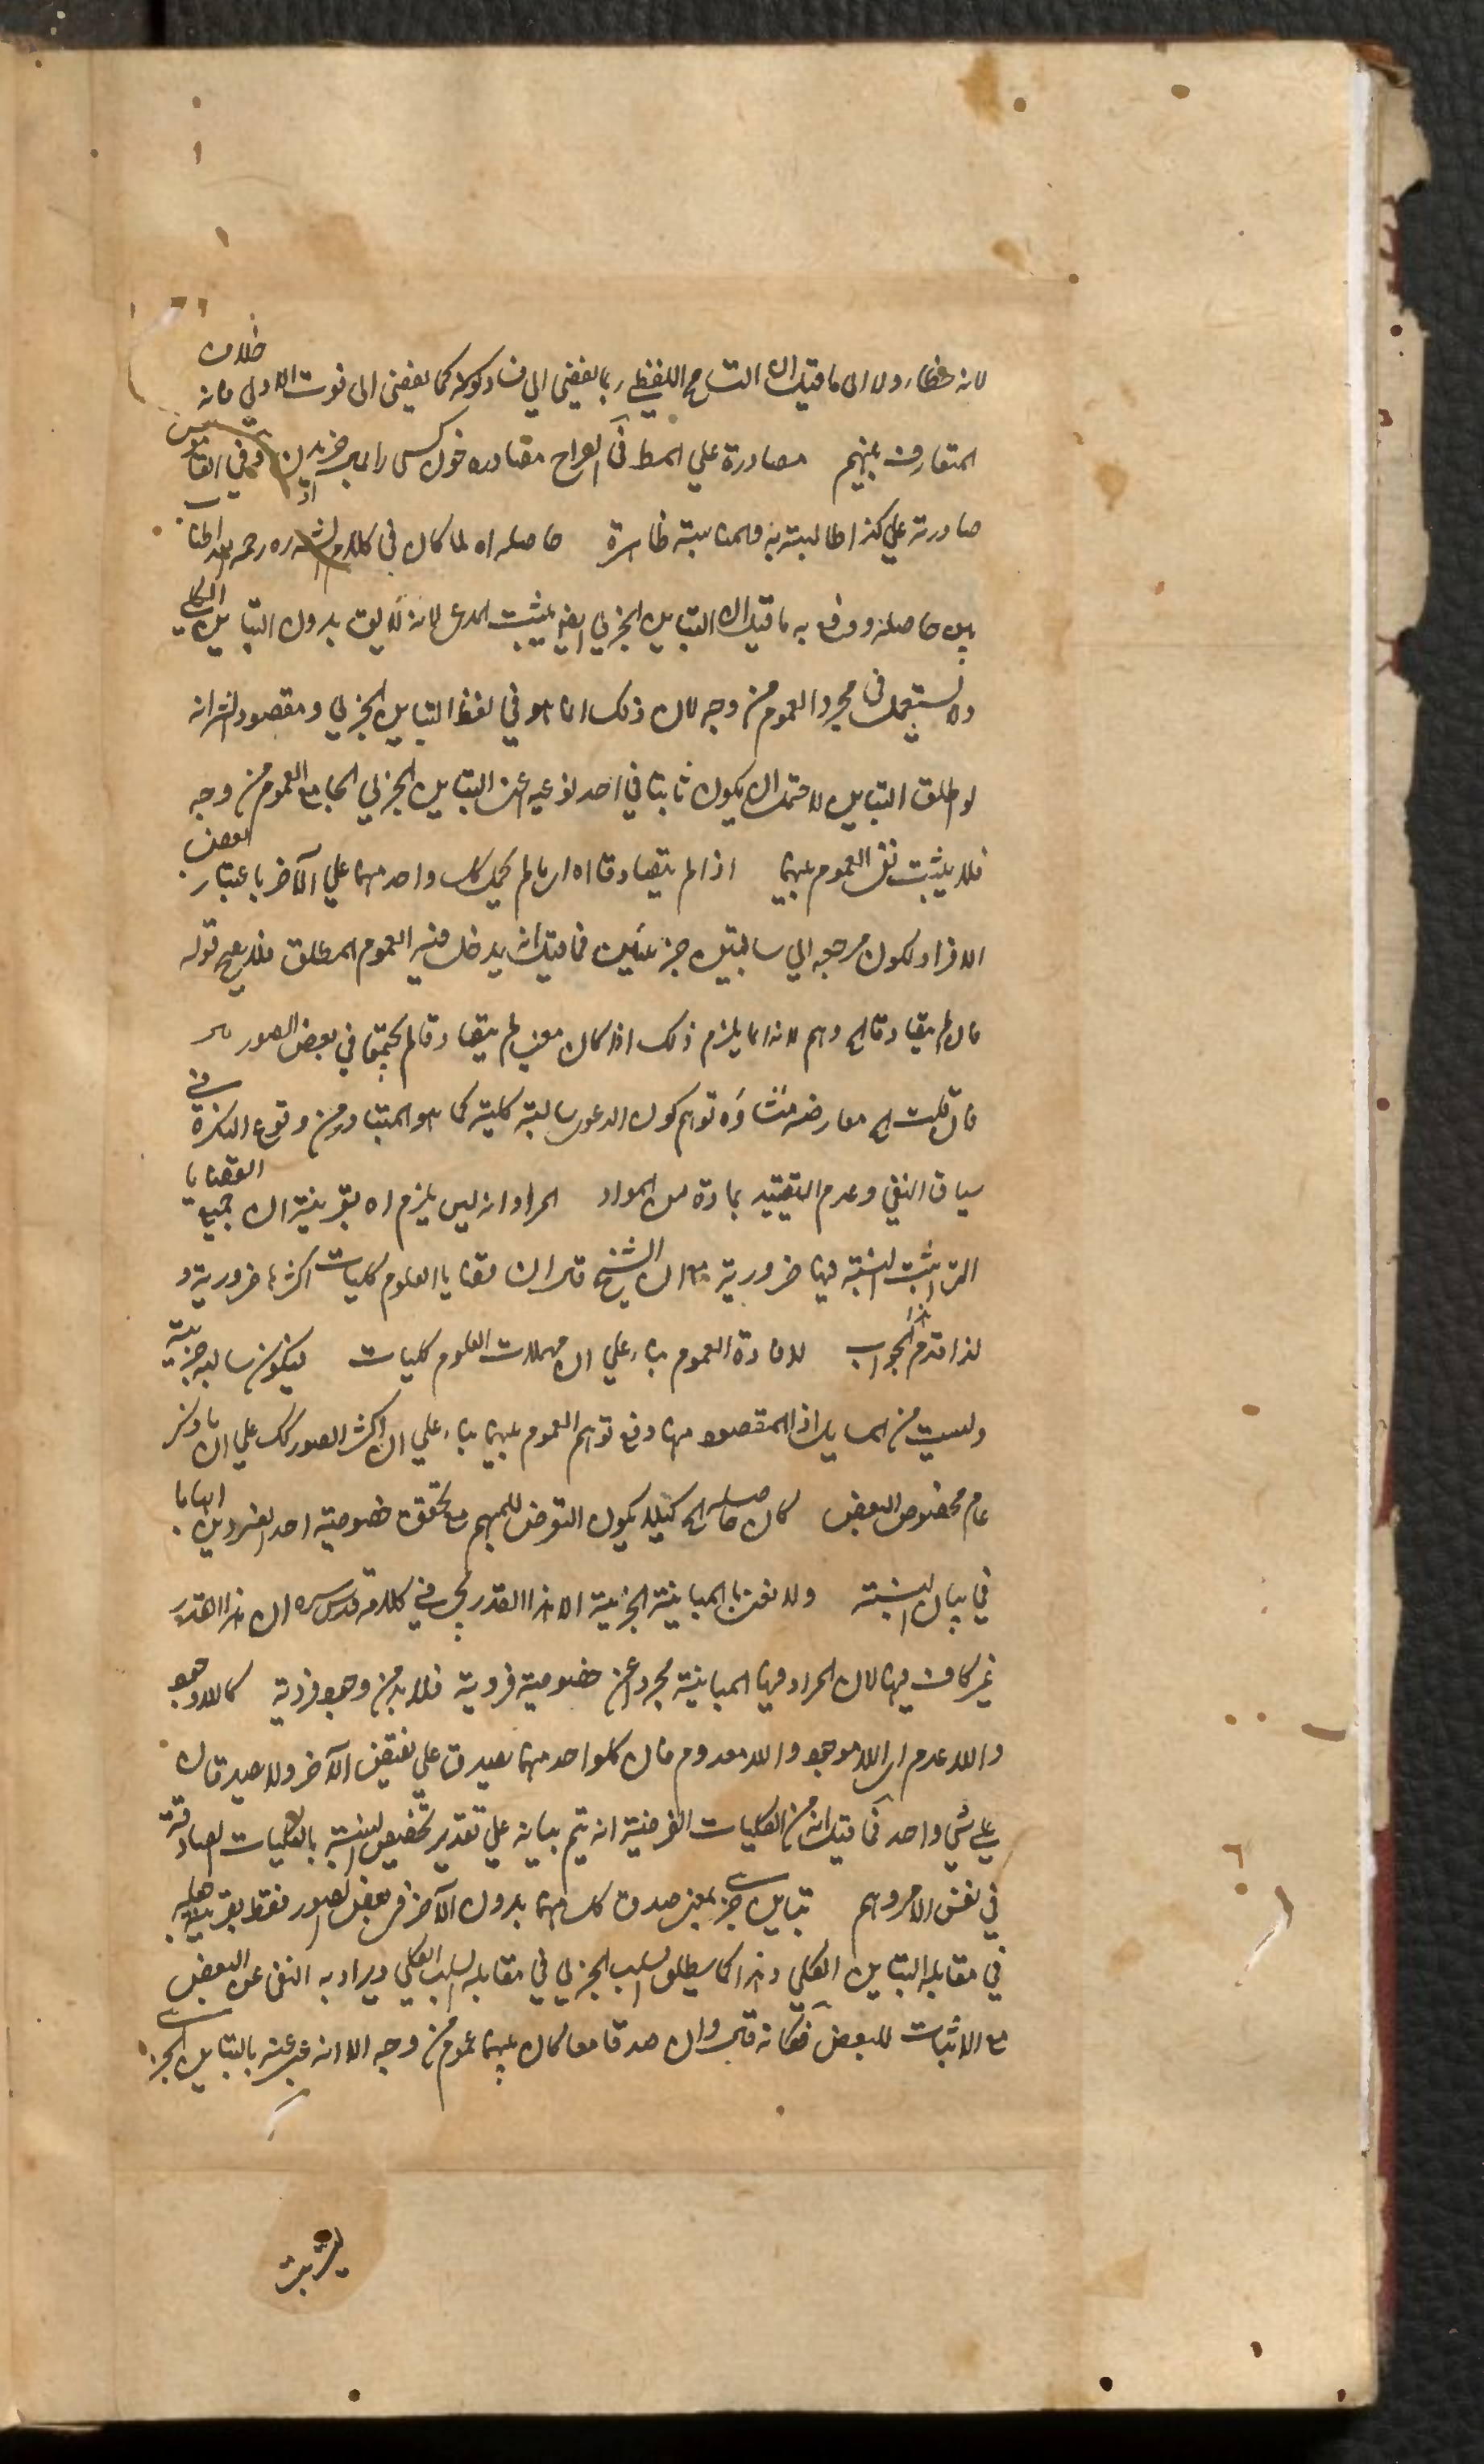 لانه خطاء ولا الى ما قيل ان التسامح اللفظي ربما يفضى الي فساد كونه كما يفضى الى فوت الاولى فانه خلاف
المتعارف بينهم مصادرة علي المط في الصراح مصادره خون كسى را بمال خريدن وفي القاموس
صادرته علي كذا طالبته به والمناسبة ظاهرة حاصله اه لما كان في كلام الشه ره رحمه الله اطناب
بين حاصله ودفع به ما قيل ان التباين الجزئي ايضا يثبت المدعى لانه لا يق بدون التباين الكلي
ولا يستعمل فى مجرد العموم من وجه لان ذلك انما هو في لفظ التباين الجزئي ومقصود الشه انه
لو اطلق التباين لاحتمل ان يكون ثابتا في احد نوعيه اعنى التباين الجزئي الجامع العموم من وجه
فلا يثبت نفى العموم بينهما اذا لم يتصادقا اه اى ما لم يحمل كل واحد منهما علي الآخر باعتبار بعض
الافراد لكون مرجعه الي سالبتين جزئيتين فما قيل انه يدخل فيه العموم المطلق فلا يصح قوله
فان لم يتصادقا الخ وهم لانه انما يلزم ذلك اذا كان معنى لم يتصادقا لم يتحققا في بعض الصور
فان قلت الخ معارضه منشاؤه توهم كون الدعوى سالبة كلية كما هو المتبادر من وقوع النكرة في
سياق النفي وعدم التقييد بمادة من المواد المراد انه ليس يلزم اه بقرينة ان جميع القضايا
التى اثبت النسبة فيها ضرورية ان الشيخ قال ان قضايا العلوم كليات اكثرها ضرورية و
لذا قدم هذا الجواب لافادة العموم بناء علي ان مهملات العلوم كليات ليكون سالبة جزئية
وليست من المسايل اذ المقصود منها دفع توهم العموم بينهما بناء علي ان اكثر الصور كك علي ان ما ذكر
عام مخصوص البعض كان حاصله الخ كيلا يكون التعرض للمبهم مع تحقق خصوصية احد الفردين ابهاما
في بيان النسبة ولا نعنى بالمباينة الجزئية الا هذا القدر يجئ في كلامه قدس سره ان هذا القدر
غير كاف فيها لان المراد فيها المباينة مجردا عن خصوصية فردية فلا بد من وجود فردية كاللاوجود
واللاعدم اى اللاموجود واللامعدوم فان كلواحد منهما يصدق علي نقيض الآخر ولا يصدقان
علي شي واحد فما قيل انه من الكليات الفرضية انه يتم بيانه علي تقدير تخصيص النسبة بالكليات الصادقة
في نفس الامر وهم تباين جزئي بمعنى صدق كل منهما بدون الآخر فى بعض الصور فقط بقرينة
في مقابلة التباين الكلي وهذا كما يطلق السلب الجزئي في مقابلة السلب الكلي ويراد به النفى عن البعض
مع الاثبات للبعض فكانه قال وان صدقا معا كان بينهما عموم من وجه الا انه عبر عنه بالتباين الجزئي